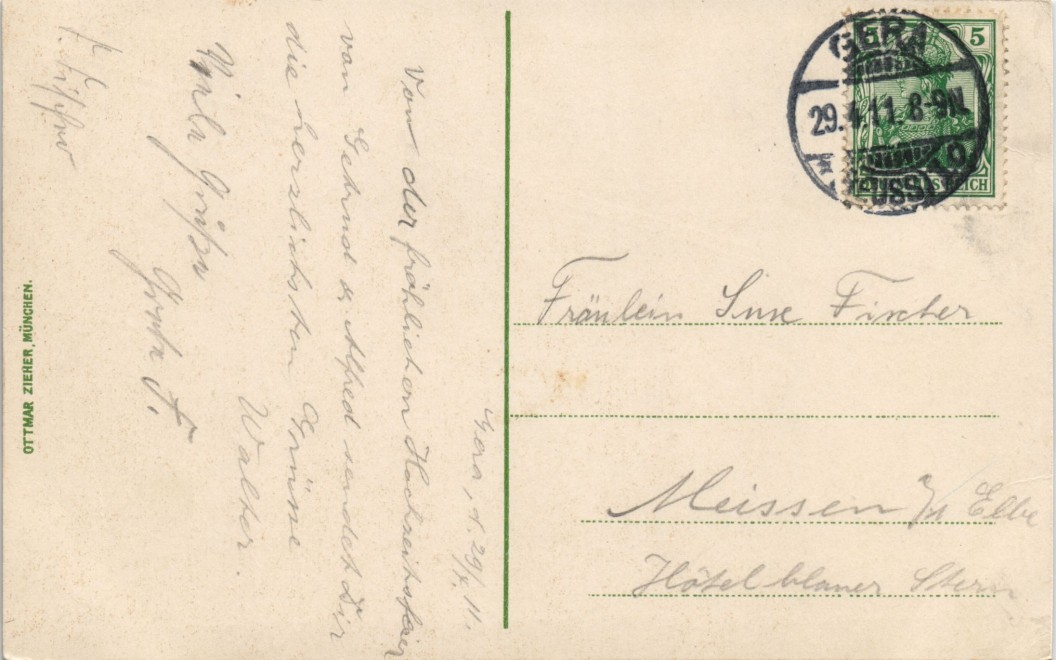 Gera, d. 29/4. 11.
Von der fröhlichen Hochzeitsfeier
von Gertrud & Alfred sendet Dir
die herzlichsten Grüsse
Walter.
Viele Grüße
Grete F.
Fischer
OTTMAR ZIEHER, MÜNCHEN.
GERA
29.4.11. 8-9N.
5
REICH
Fräulein Suse Fischer
Meissen a/ Elbe
Hôtel blauer Stern